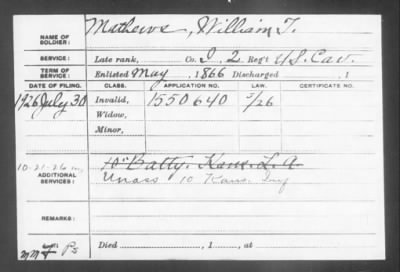 NAME OF SOLDIER: Mathews, William T.
SERVICE: Late rank, Co. I. 2 Reg't U.S. Cav.
TERM OF SERVICE: Enlisted May , 1866 Discharged , 1
DATE OF FILING. CLASS. APPLICATION NO. LAW. CERTIFICATE NO.
1926 July 30 Invalid, 1550640 5/26
Widow,
Minor,
10-21-26
ADDITIONAL SERVICES: 10" Batty. Kans. L. A.
Unass 10 Kans. Inf
REMARKS:
Died , 1 , at